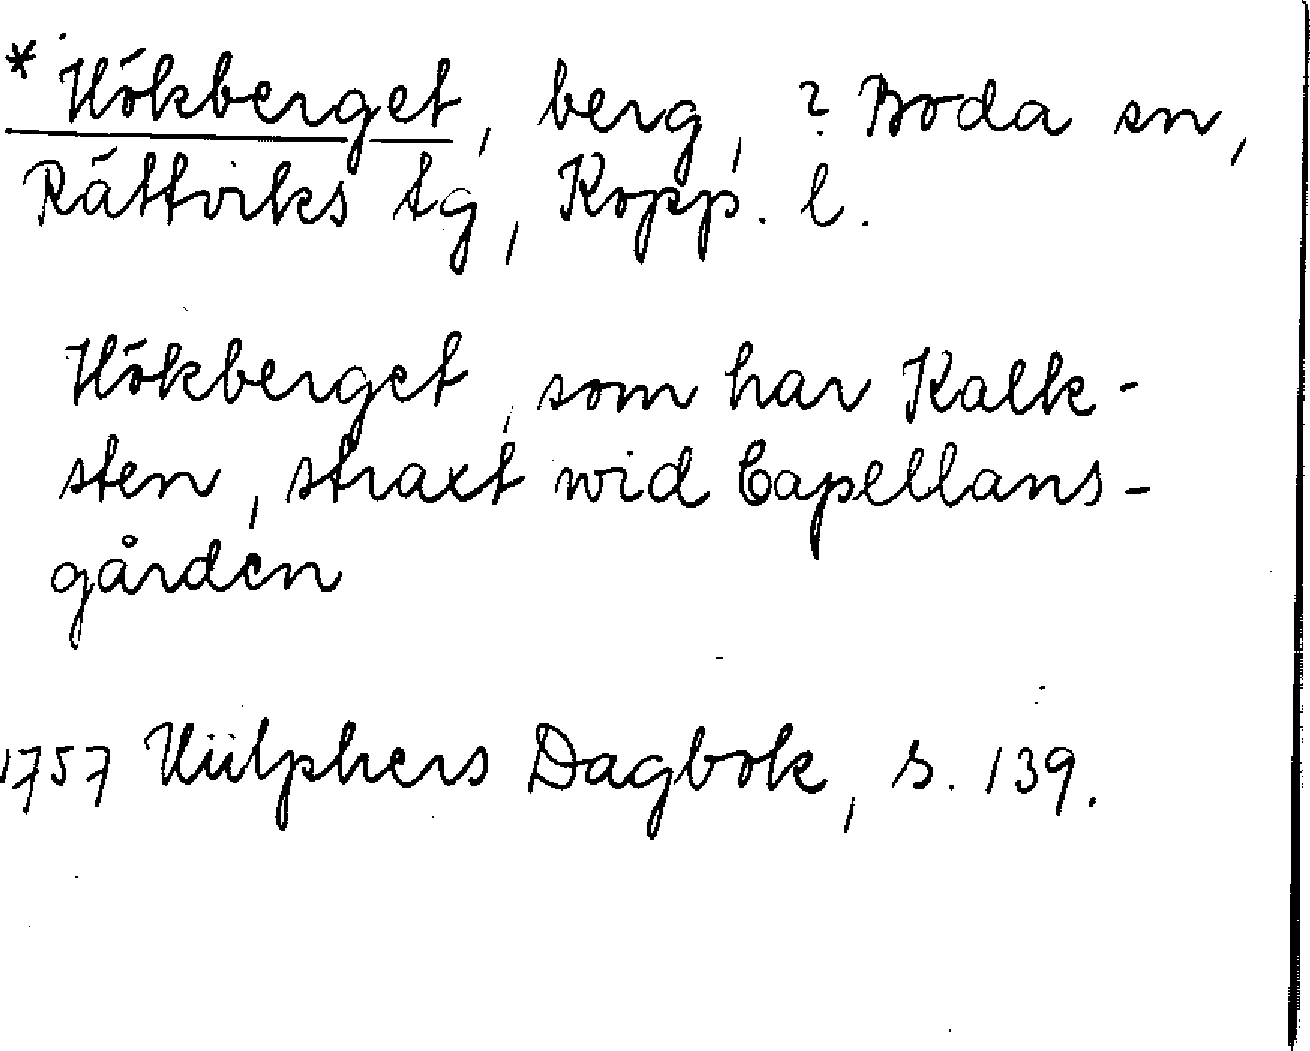 * Hökberget, berg, ? Boda sn,
Rättviks tg, Kopp. l.
Hökberget, som har Kalk-
sten, straxt wid Capellans-
gården
1757 Hülphers Dagbok, s. 139.